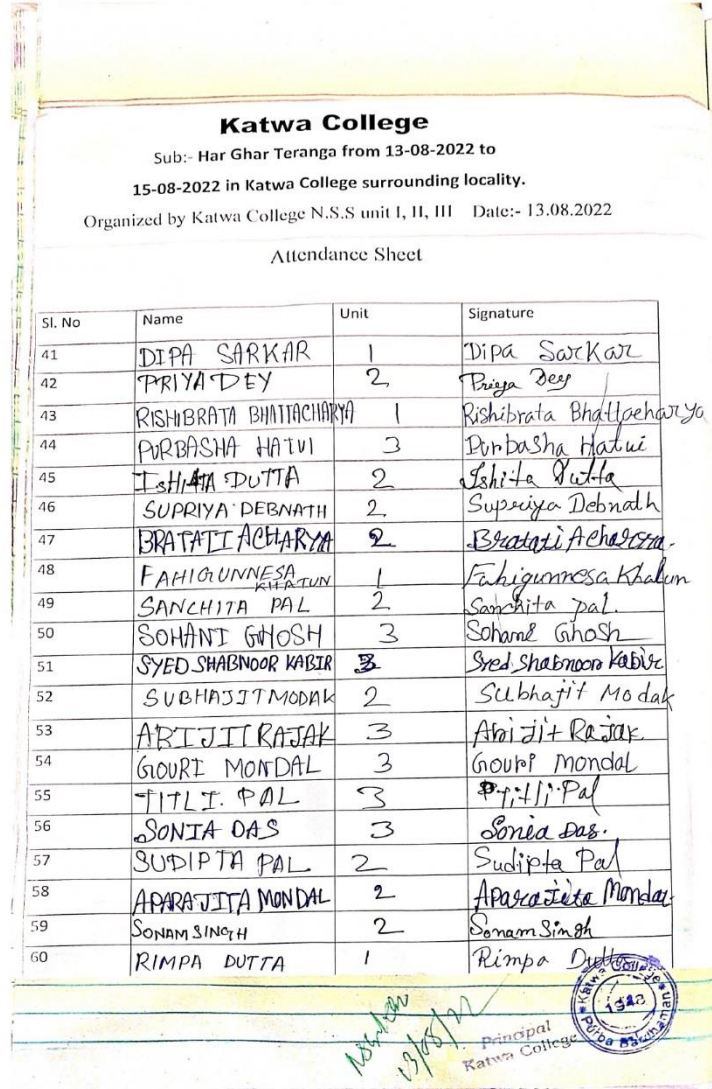 Katwa College
Sub:- Har Ghar Teranga from 13-08-2022 to
15-08-2022 in Katwa College surrounding locality.
Organized by Katwa College N.S.S unit I, II, III Date:- 13.08.2022
Attendance Sheet
Sl. No Name Unit Signature
41 DIPA SARKAR 1 Dipa Sarkar
42 PRIYA DEY 2 Priya Dey
43 RISHIBRATA BHATTACHARYA 1 Rishibrata Bhattacharya
44 PURBASHA HATUI 3 Purbasha Hatui
45 ISHITA DUTTA 2 Ishita Dutta
46 SUPRIYA DEBNATH 2 Supriya Debnath
47 BRATATI ACHARYA 2 Bratati Acharyya.
48 FAHIGUNNESA KHATUN 1 Fahigunnesa Khatun
49 SANCHITA PAL 2 Sanchita pal.
50 SOHANI GHOSH 3 Sohani Ghosh
51 SYED SHABNOOR KABIR 3 Syed Shabnoor Kabir
52 SUBHAJIT MODAK 2 Subhajit Modak
53 ABIJIT RAJAK 3 Abijit Rajak.
54 GOURI MONDAL 3 Gouri Mondal
55 TITLI. PAL 3 Titli Pal
56 SONIA DAS 3 Sonia Das.
57 SUDIPTA PAL 2 Sudipta Pal
58 APARAJITA MONDAL 2 Aparajita Mondal.
59 SONAM SINGH 2 Sonam Singh
60 RIMPA DUTTA 1 Rimpa Dutta
13/08/22
Principal
Katwa College
Katwa College
1948
Purba Bardhaman